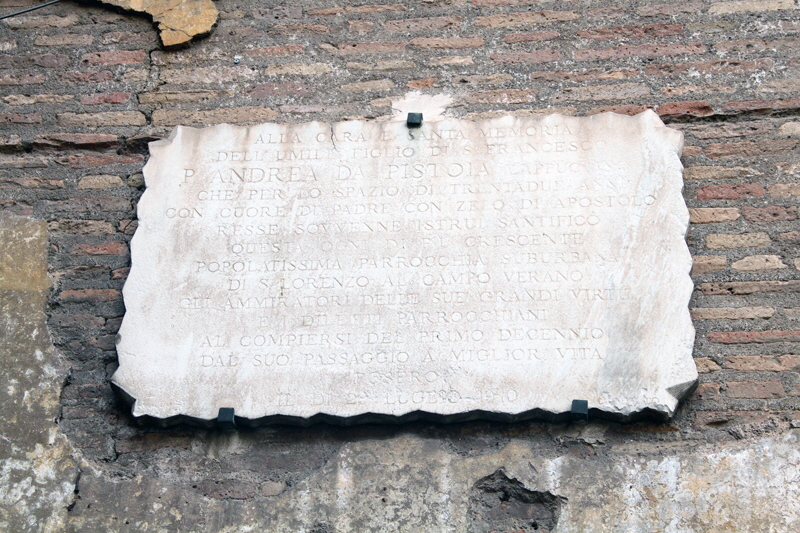 ALLA CARA E SANTA MEMORIA
DELL'UMILE FIGLIO DI S. FRANCESCO
P. ANDREA DA PISTOIA CAPPUCCINO
CHE PER LO SPAZIO DI TRENTADUE ANNI
CON CUORE DI PADRE CON ZELO DI APOSTOLO
RESSE SOVVENNE ISTRUÌ SANTIFICÒ
QUESTA OGNI DÌ PIÙ CRESCENTE
POPOLATISSIMA PARROCCHIA SUBURBANA
DI S. LORENZO AL CAMPO VERANO
GLI AMMIRATORI DELLE SUE GRANDI VIRTÙ
PARROCCHIANI
AL COMPIERSI DEL PRIMO DECENNIO
DAL SUO PASSAGGIO A MIGLIOR VITA
POSERO
IL DÌ LUGLIO